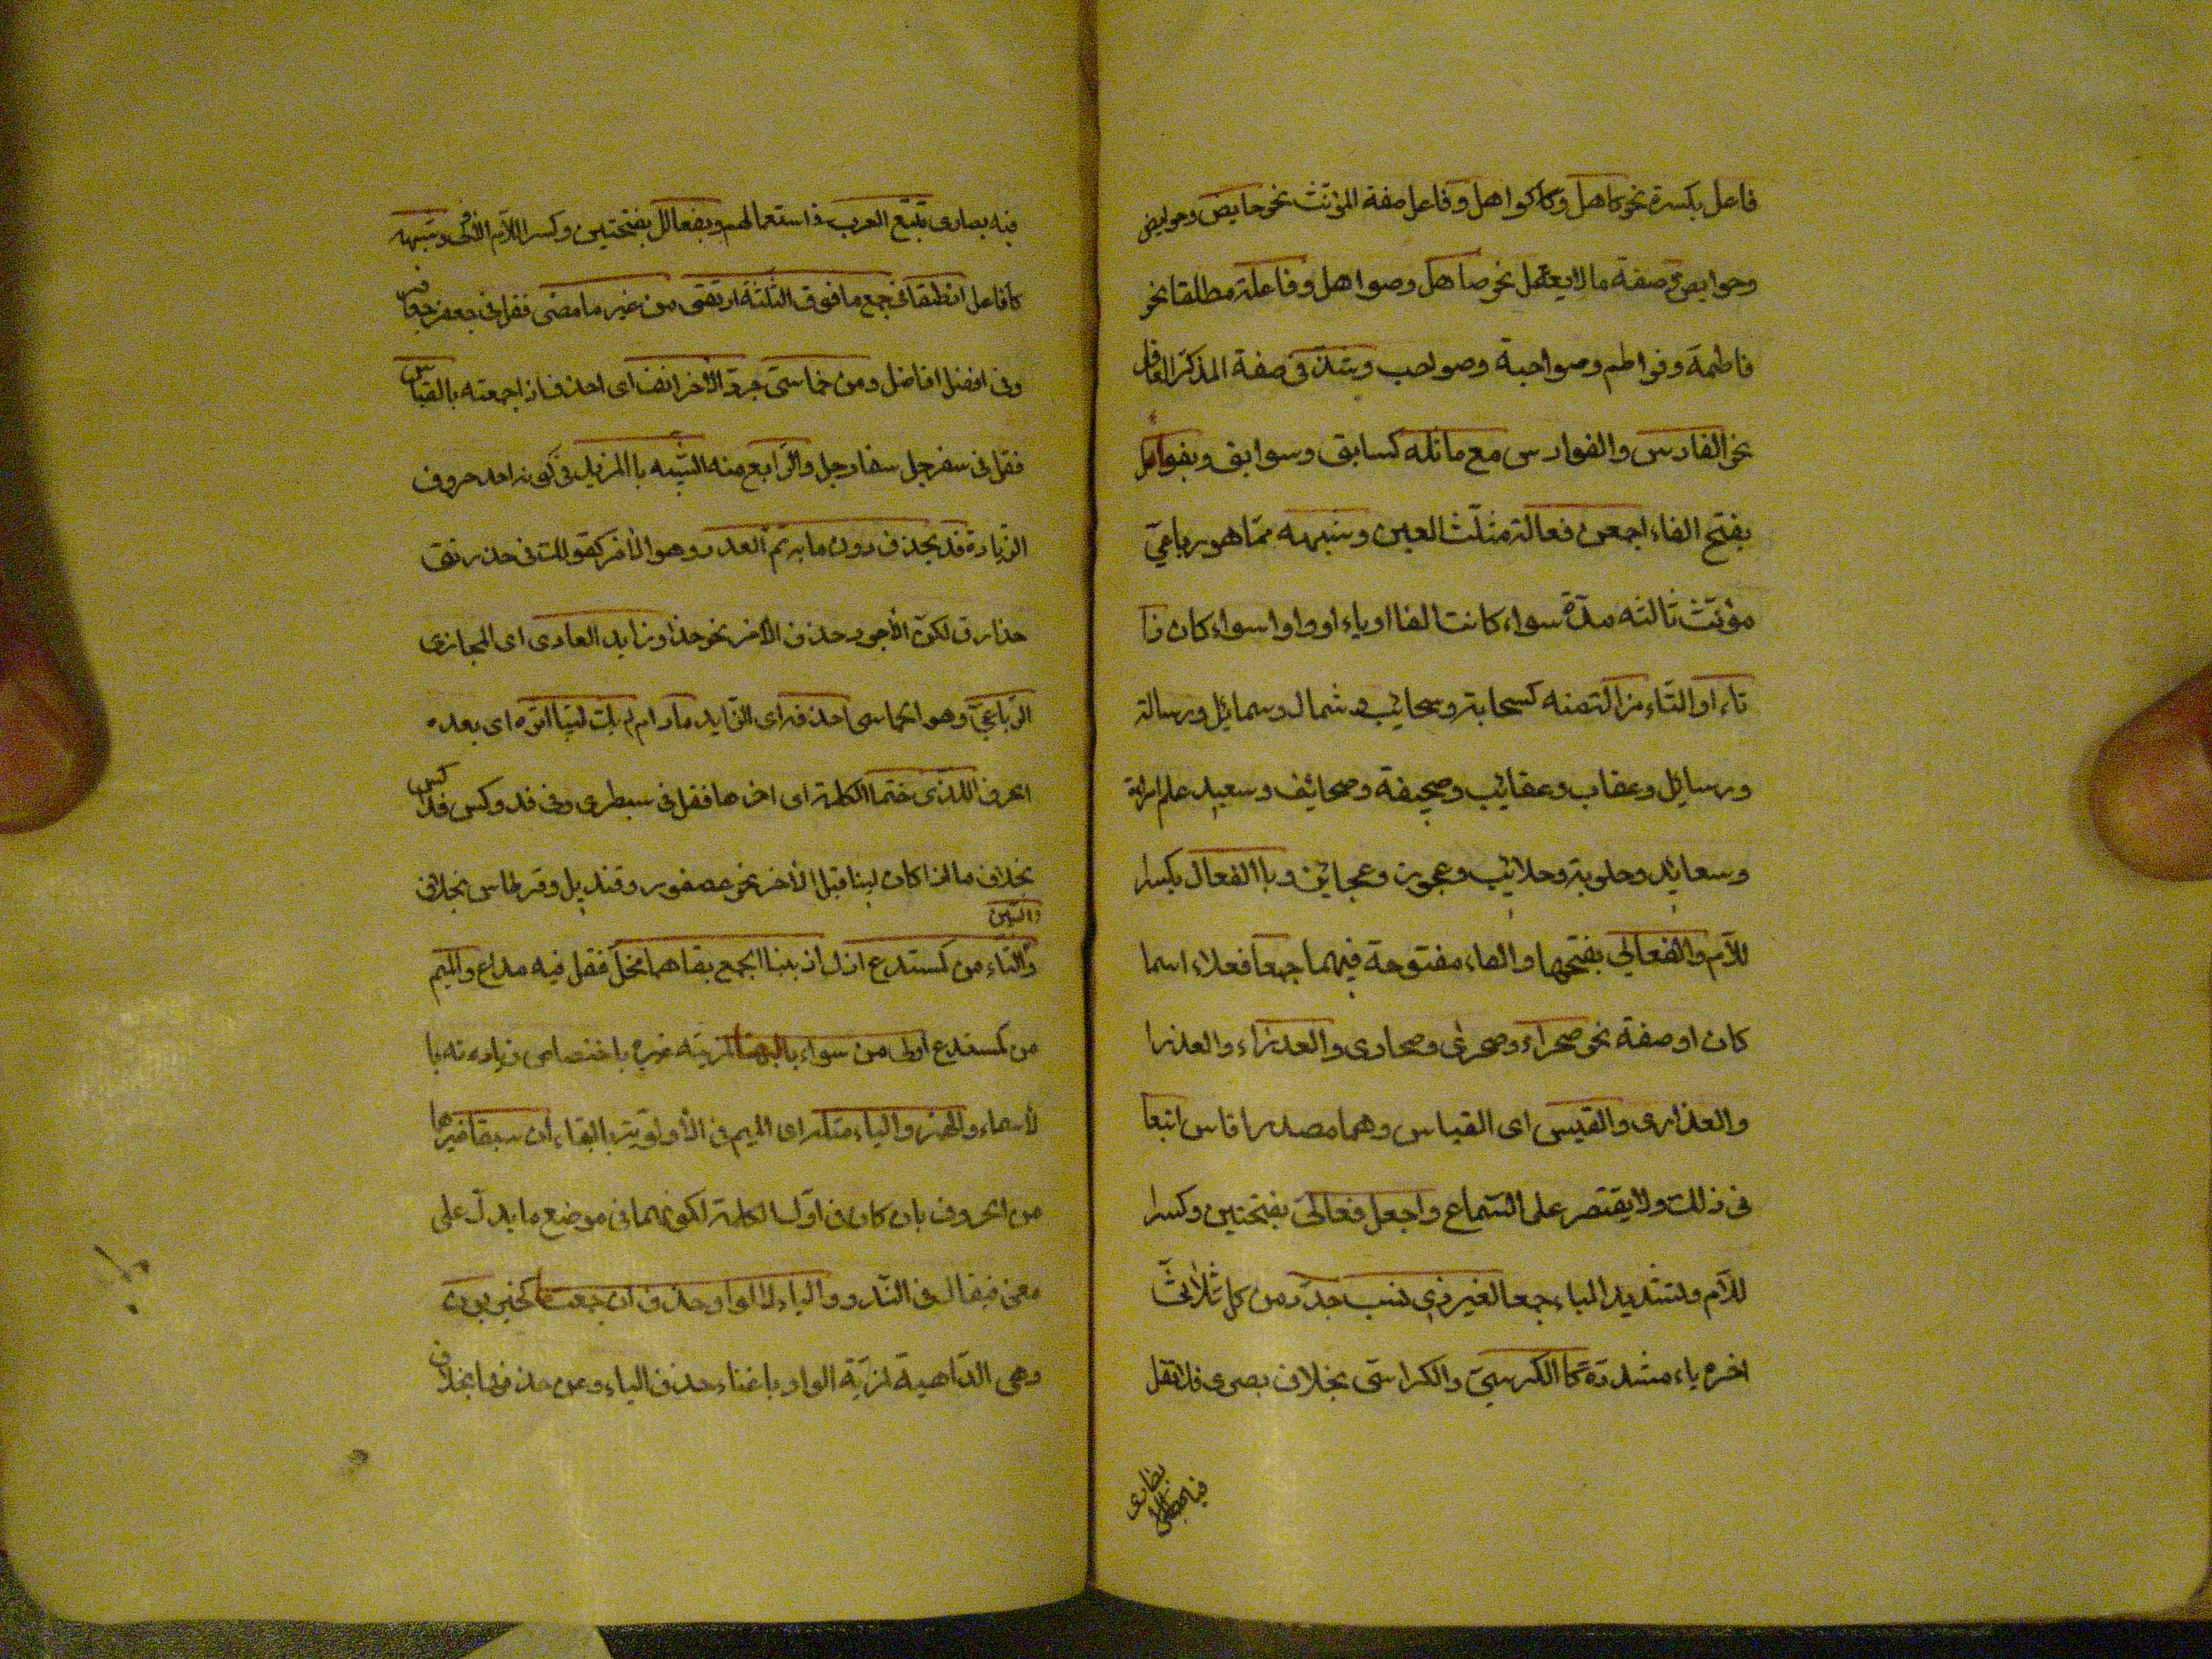 فاعل بكسرة نحو كاهل وكاكواهل وفاعل صفة المؤنّث نحو حايص وحوايص
وحوايض وصفة ما لا يعقل نحو صاهل وصواهل وفاعلة مطلقا نحو
فاطمة وفواطم وصواحبة وصواحب وشذّ فى صفة المذكر العاقل
نحو الفارس والفوارس مع ماثله كسابق وسوابق وبفواعل
بفتح الفاء اجمعن فعالة مثلّث العين وشبهه ممّا هو رباعيّ
مؤنّث ثالثه مدّة سواء كانت الفا او ياء او واوا سواء كان ذا
تاء او التّاء مزالته منه كسحابة وسحائب وشمال وشمائل ورسالة
ورسائل وعقاب وعقائب وصحيفة وصحائف وسعيد علم امراة
وسعائد وحلوبة وحلائب وعجوز وعجائز وبا الفعال بكسر ا
للّام والفعالي بفتحها والفاء مفتوحة فيهما جمعا فعلاء اسما
كان او صفة نحو صحراء وصحرى وصحارى والعذراء والعذرا
والعذارى والقيس اى القياس وهما مصدرا قاس اتبعا
فى ذلك ولا يقتصر على السّماع واجعل فعالىّ بفتحتين وكسر ا
للّام وتشديد الياء جمعا لغير ذى نسب جدّد من كل ثلاثىّ
اخره ياء مشددة كا الكرسيّ والكراسىّ بخلاف بصرى فلا تقل
فيه بصارى تتبّع العرب فى استعمالهم وبفعالل بفتحتين وكسر اللّام الاولى وشبهه
كافاعل انطقا فى جمع ما فوق الثّلثة ارتقى من غير ما مضى فقل فى جعفر جعافر
وفى افضل افاضل ومن خماسىّ جرّد الاخر انف اى احذف اذا جمعته بالقياس
فقل فى سفرجل سفارج والرّابع منه الشّبيه با المزيد فى كونه احد حروف
الزّيادة قد يحذف دون ما به تمّ العدد وهو الاخر كقولك فى خدرنق
خدارق لكنّ الأجود حذف الاخر نحو خدارن وزايد العادى اى المجازى
الرّباعيّ وهو الخماسى احذفه اى الزّايد مادام لم يك لينا اثره اى بعده
الحرف اللذى ختما الكلمة اى اخرها فقل فى سبطرى وفى فدوكس فداكس
بخلاف ما اذا كان لينا قبل الأخر نحو عصفور وقنديل وقرطاس بخلاف
والسّين
والتّاء من كمستدع ازل اذ ببنا الجمع بقاهما مخلّ فقل فيه مداع والميم
من كمستدع اولى من سواه بالبقا لمزيّته غيره باختصاص زيادته با
لأسماء والهمز والياء مثله اى الميم فى الأولوية بالبقاء ان سبقا غيرهما
من الحروف بان كان فى اوّل الكلمة لكونهما فى موضع ما يدلّ على
معنى فيقال فى النّدد والياء لا الواو احذف ان جمعت ما كحيزبون
وهى الدّاهية لمزيّة الواو باغناء حذف الياء وعن حذفها بخلاف